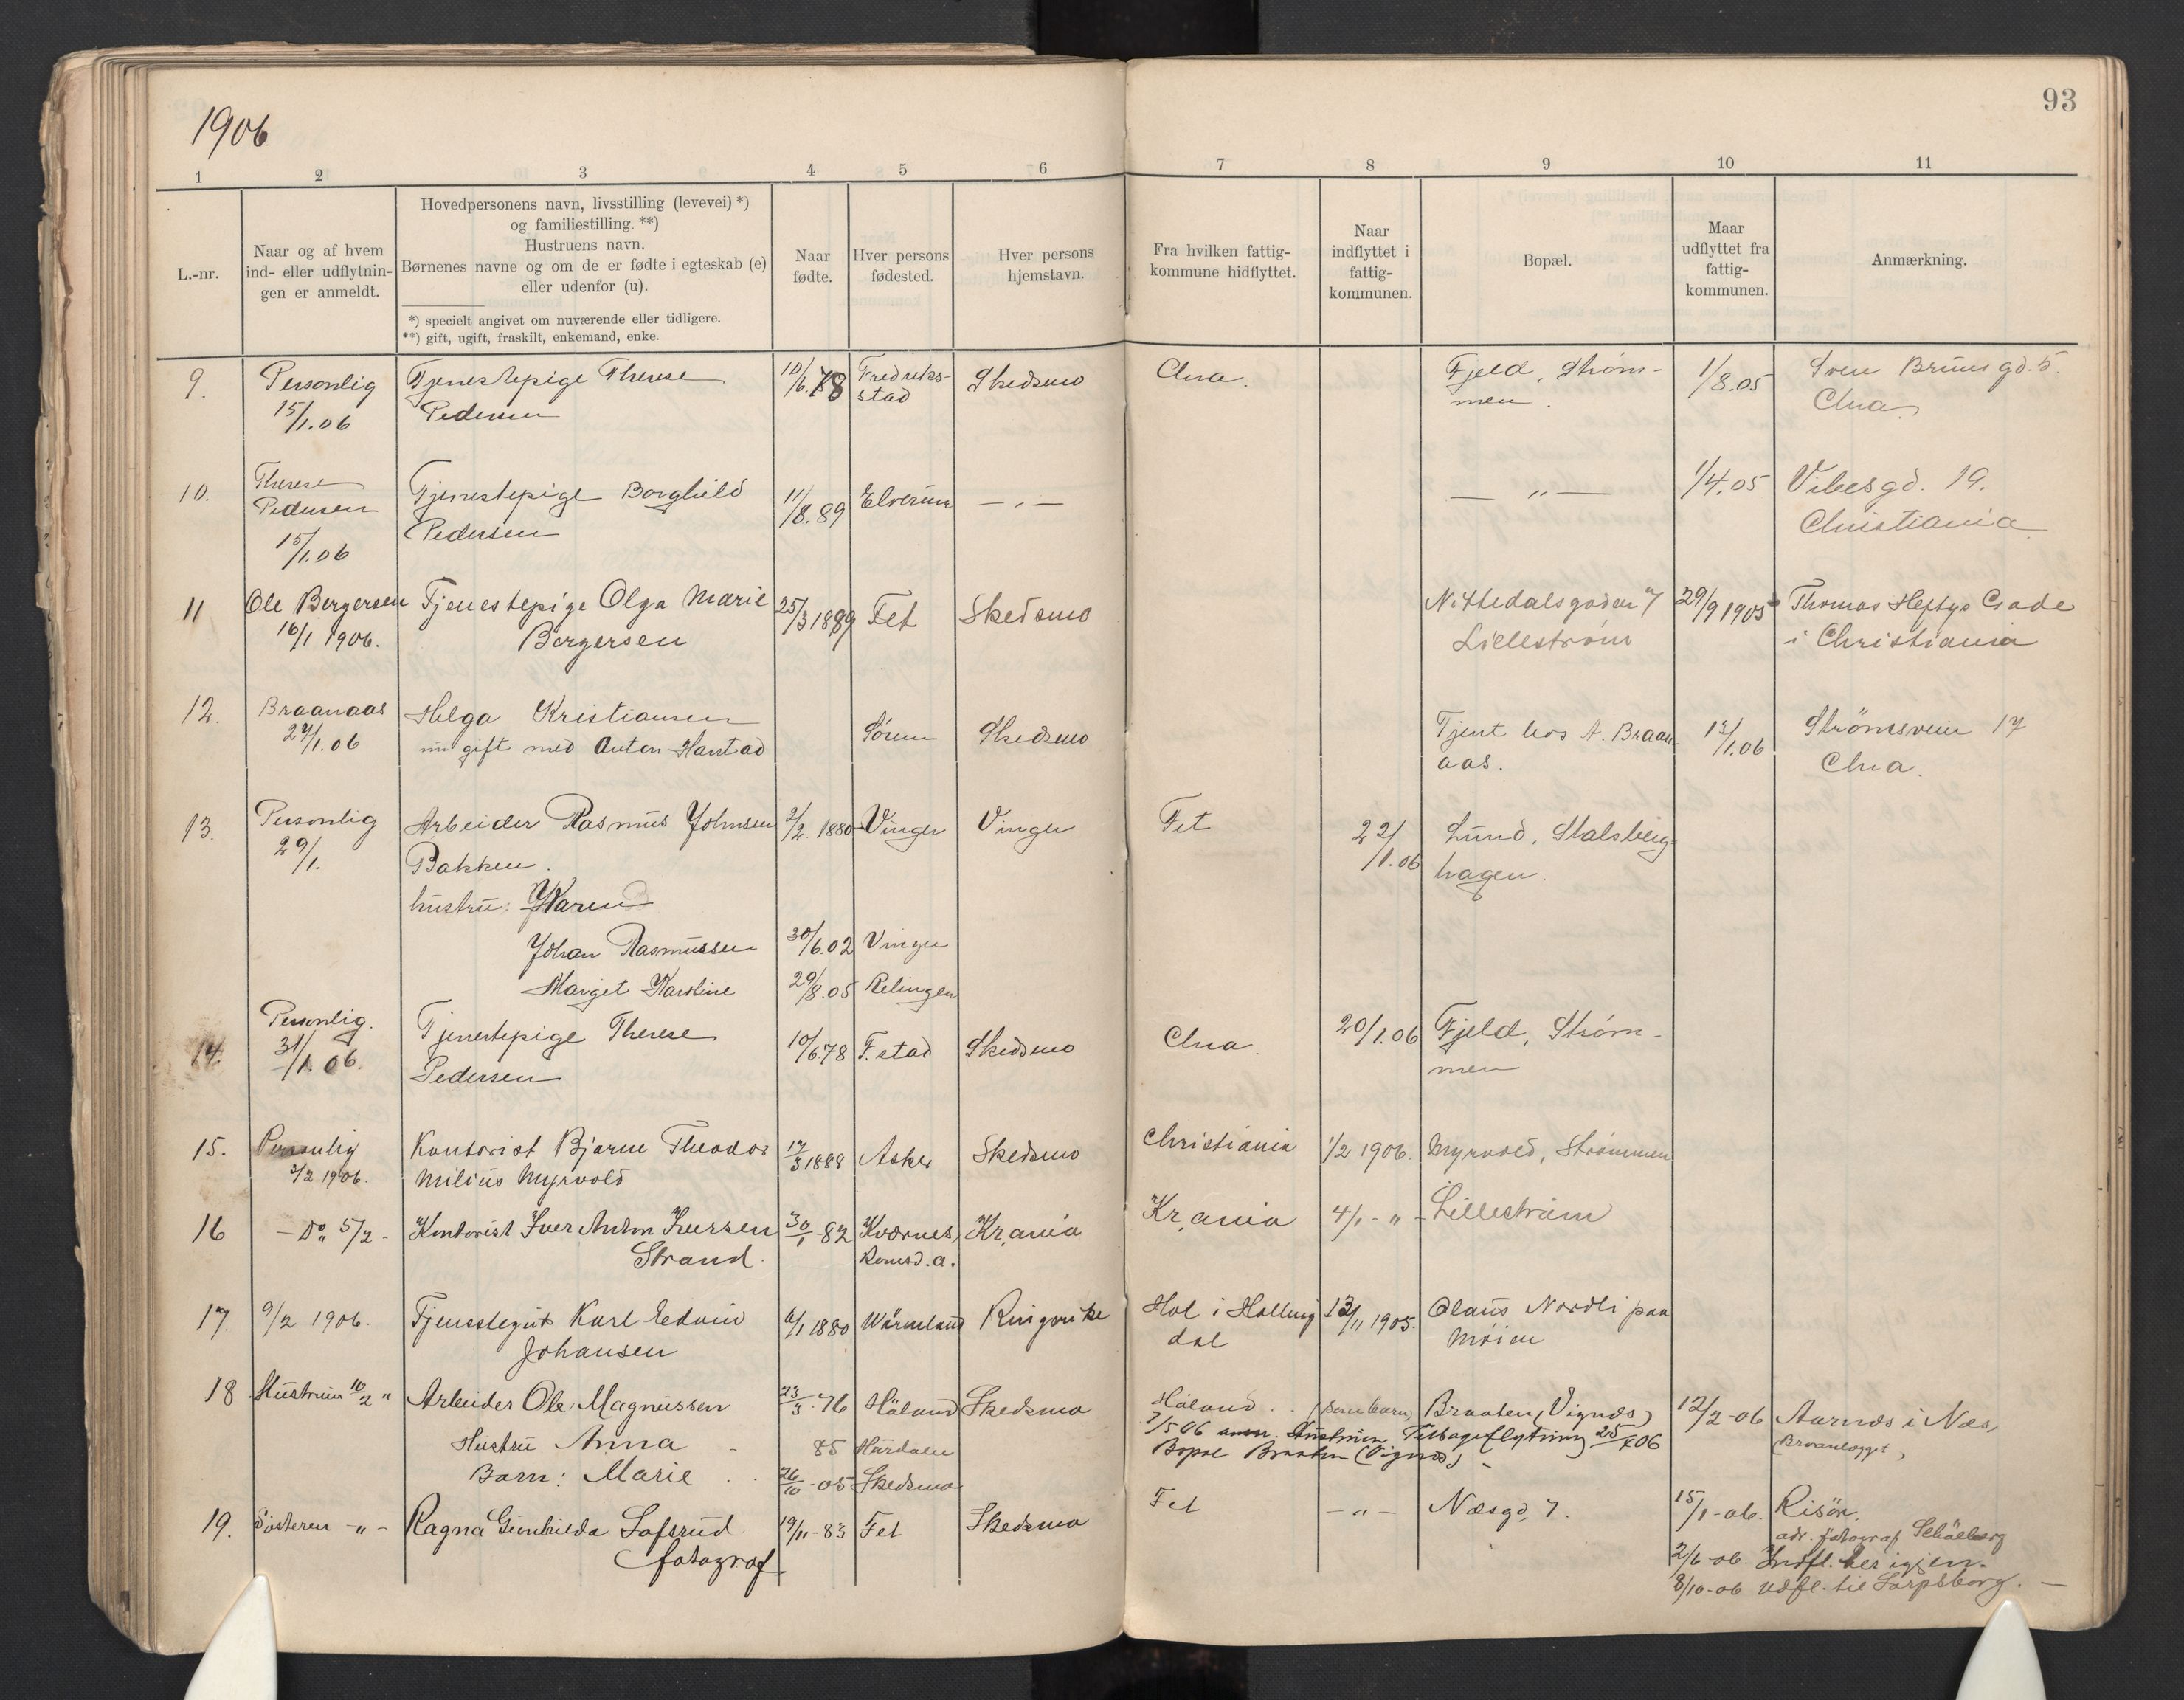 1906
93
1 2 3 4 5 6 7 8 9 10 11
L.-nr.
Naar og af hvem
ind- eller udflytnin-
gen er anmeldt.
Hovedpersonens navn, livsstilling (levevei) *)
og familiestilling. **)
Hustruens navn.
Børnenes navne og om de er fødte i egteskab (e)
eller udenfor (u).
*) specielt angivet om nuværende eller tidligere.
**) gift, ugift, fraskilt, enkemand, enke.
Naar
fødte.
Hver persons
fødested.
Hver persons
hjemstavn.
Fra hvilken fattig-
kommune hidflyttet.
Naar
indflyttet i
fattig-
kommunen.
Bopæl.
Maar
udflyttet fra
fattig-
kommunen.
Anmærkning.
9. Personlig Tjenestepige Therese 10/6.78 Fredriks- Skedsmo Chra. Fjeld, Strøm- 1/8.05 Sven Bruns gd. 5.
15/1.06 Pedersen stad men. Chra
10. Therese Tjenestepige Borghild 11/8.89 Elverum — " — — " — 1/4.05 Vibesgd. 19.
Pedersen Pedersen Christiania
15/1.06
11 Ole Bergersen Tjenestepige Olga Marie 25/3 1889 Fet Skedsmo Nittedalsgaden 7 29/9 1905 Thomas Heftys Gade
16/1 1906. Bergersen Lillestrøm i Christiania
12. Braanaas Helga Kristiansen Sørum Skedsmo Tjent hos A. Braan- 13/1.06 Strömsveien 17
24/1.06 nu gift med Anton Harstad aas. Chra.
13. Personlig Arbeider Rasmus Johnsen 2/2. 1880 Vinger Vinger Fet 22/1.06 Lund, Stalsberg-
29/1. Bakken. hagen.
hustru: Karen
Johan Rasmussen 30/6.02 Vinger
Marget Karoline 29/8.05 Relingen
14. Personlig. Tjenestepige Therese 10/6.78 F.stad Skedsmo Chra. 20/1.06 Fjeld, Strøm-
31/1.06. Pedersen men
15. Personlig Kontorist Bjarne Theodor 17/3 1888 Asker Skedsmo Christiania 1/2 1906. Myrvold, Strømmen
2/2 1906. Milius Myrvold
16 — Do 5/2 - Kontorist Iver Anton Iversen 30/1 82 Kværnes, Kr.ania Kr.ania 4/1 - " - Lillestrøm
Strand. Romsd. a.
17. 9/2 1906. Tjenestegut Karl Edvin 6/1 1880 Wärmland Ringerike Hol i Halling 13/11 1905. Olaus Nordli paa
Johansen dal Moien
18 Hustruen 10/2 " Arbeider Ole Magnussen 23/3 - 76 Höland Skedsmo Höland . . Braaten (Vignæs) 12/2 -06 Aarnæs i Næs,
Hustru Anna - 85 Hurdalen 7/5 06 anm. Hustruen Tilbageflytning 25/4 06
Barn: Marie . . 26/10 -05 Skedsmo Bopæl Braaten (Vignæs) -
19. Søsteren - " - Ragna Gunhilda Lofsrud 19/11 - 83 Fet Skedsmo Fet - " - Næsgd. 7. 15/1 -06. Risör.
fotograf adr. fotograf
2/6 -06. Indfl. her igjen.
8/10 -06 Udfl. til Sarpsborg. —